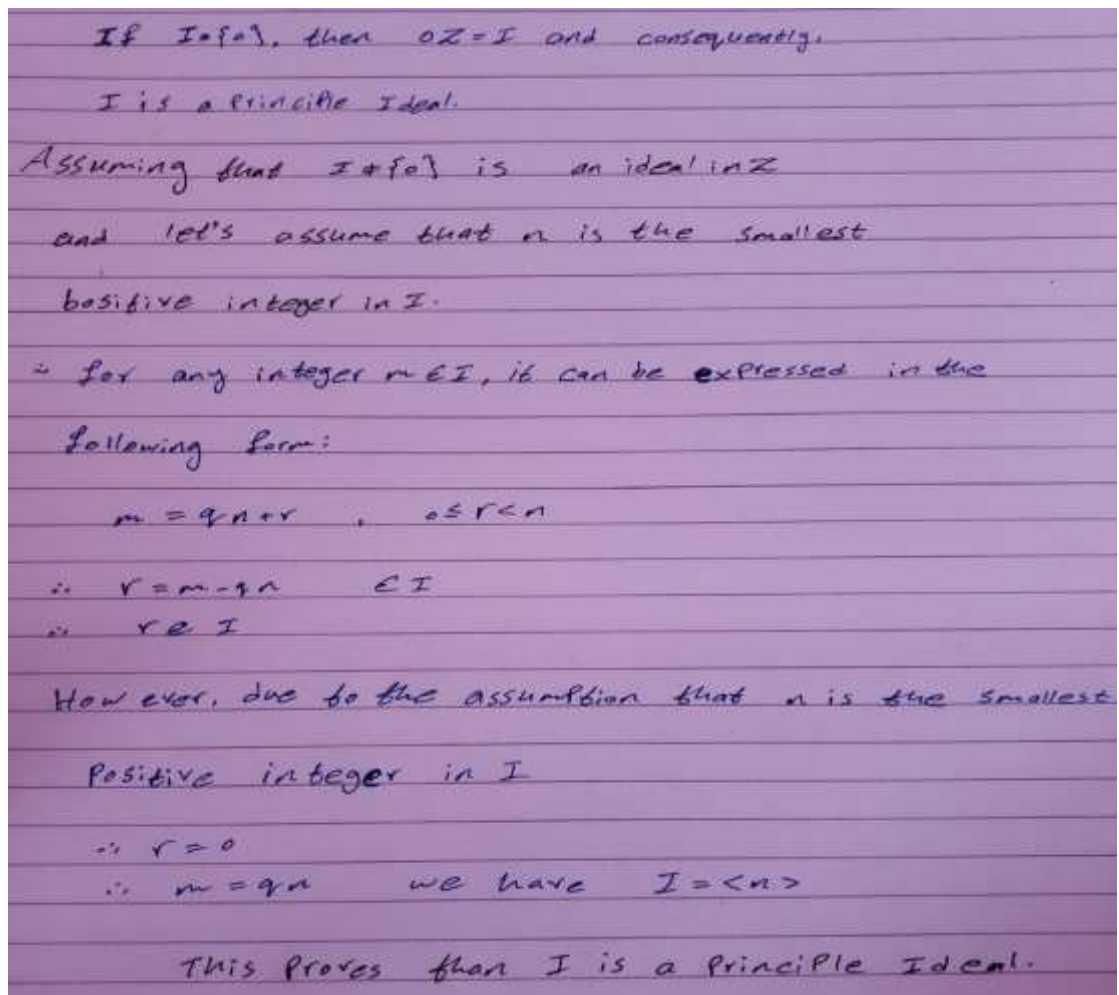 If I={0}, then 0Z=I and consequently,
I is a Principle Ideal.
Assuming that I≠{0} is an ideal in Z
and let's assume that n is the smallest
bositive integer in I.
∴ for any integer m∈I, it can be expressed in the
following form:
m = qn+r , 0≤r<n
∴ r=m-qn ∈I
∴ r∈I
However, due to the assumption that n is the smallest
Positive integer in I
∴ r=0
∴ m=qn we have I=<n>
This Proves than I is a Principle Ideal.